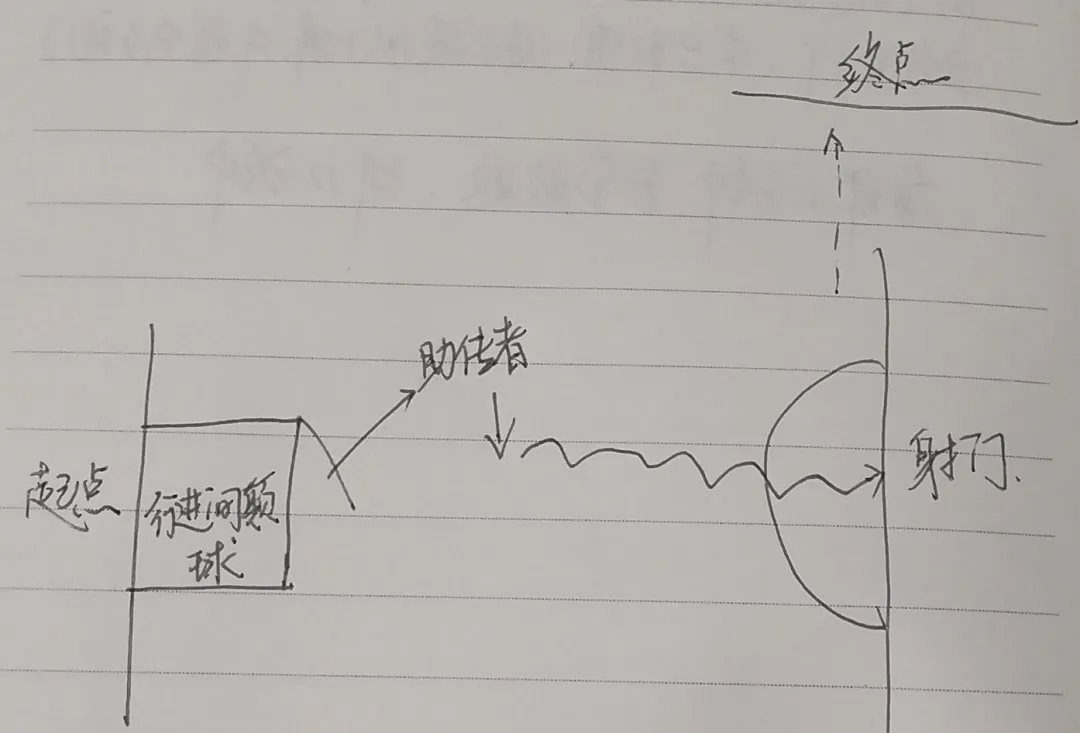 终点
助传者
起点
行进间颠
球
射门.